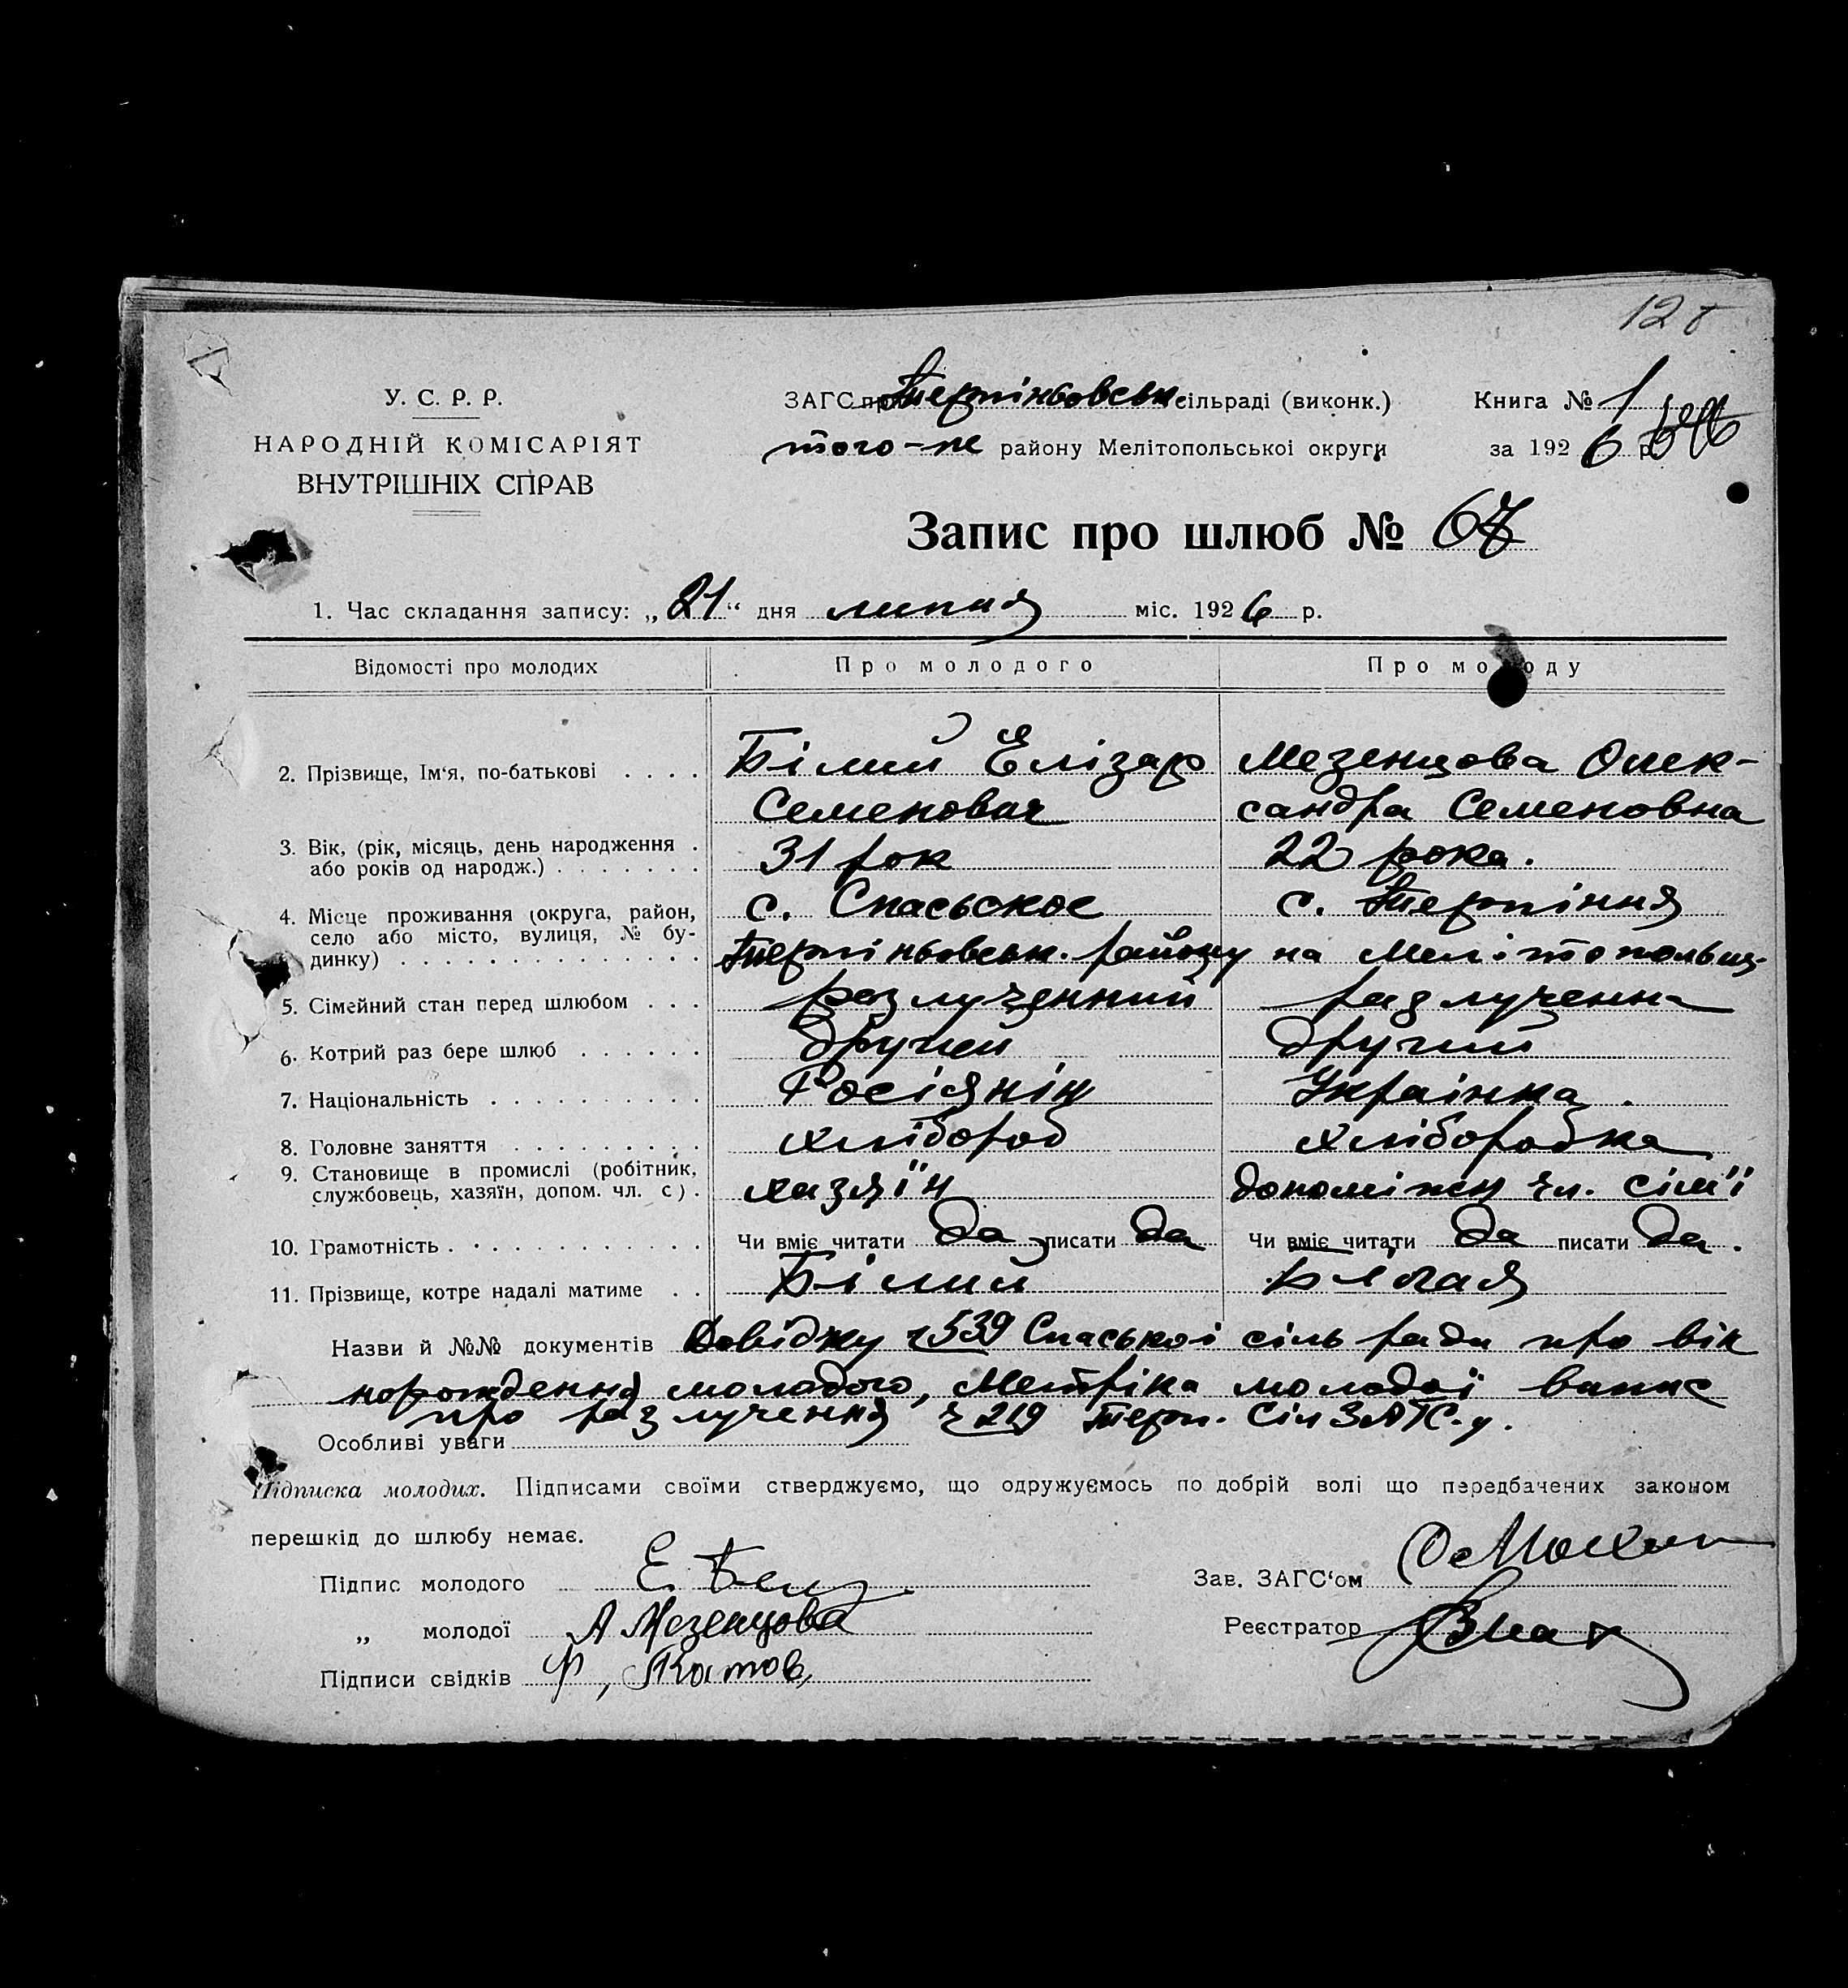 У. С. Р. Р.
НАРОДНІЙ КОМІСАРІЯТ
ВНУТРІШНІХ СПРАВ
ЗАГС при Терпіньовськ. сільраді (виконк.)
того-же району Мелітопольської округи
Книга № 1
за 1926 р.
Запис про шлюб № 67
1. Час складання запису: „21“ дня липня міс. 1926 р.
Відомості про молодих
Про молодого
Про молоду
2. Прізвище, Ім‘я, по-батькові . . . .
Білий Елізар
Семенович
Мезенцова Олек-
сандра Семеновна
3. Вік, (рік, місяць, день народження .
або років од народж.) . . . . . . .
31 рок
22 рока.
4. Місце проживання (округа, район,
село або місто, вулиця, № бу-
динку) . . . . . . . . . . . . . .
с. Спасьское
с. Терпіння
Терпіньовськ. району на Мелітопольщ.
5. Сімейний стан перед шлюбом . . .
розлученний
разлученна
6. Котрий раз бере шлюб . . . . . .
другий
другий
7. Національність . . . . . . . . . .
Росіянін
Украінка.
8. Головне заняття . . . . . . . . .
хлібороб
хліборобка
9. Становище в промислі (робітник,
службовець, хазяїн, допом. чл. с) .
хазяїн
допоміжн чл. сім'ї
10. Грамотність . . . . . . . . . . . .
Чи вміє читати да писати да
Чи вміє читати да писати да.
11. Прізвище, котре надалі матиме . .
Білий
Білая
Назви й №№ документів Довіджу ч 539 Спаської сіль ради про вік
порождення молодого, Метріка молодої випис
про разлучення ч 219 Терп. Сіл ЗАГС-у.
Особливі уваги
Підписка молодих. Підписами своїми стверджуємо, що одружуємось по добрій волі що передбачених законом
перешкід до шлюбу немає.
Підпис молодого Е. Бел
„ молодої А Мезенцова
Підписи свідків
Зав. ЗАГС‘ом
Реєстратор